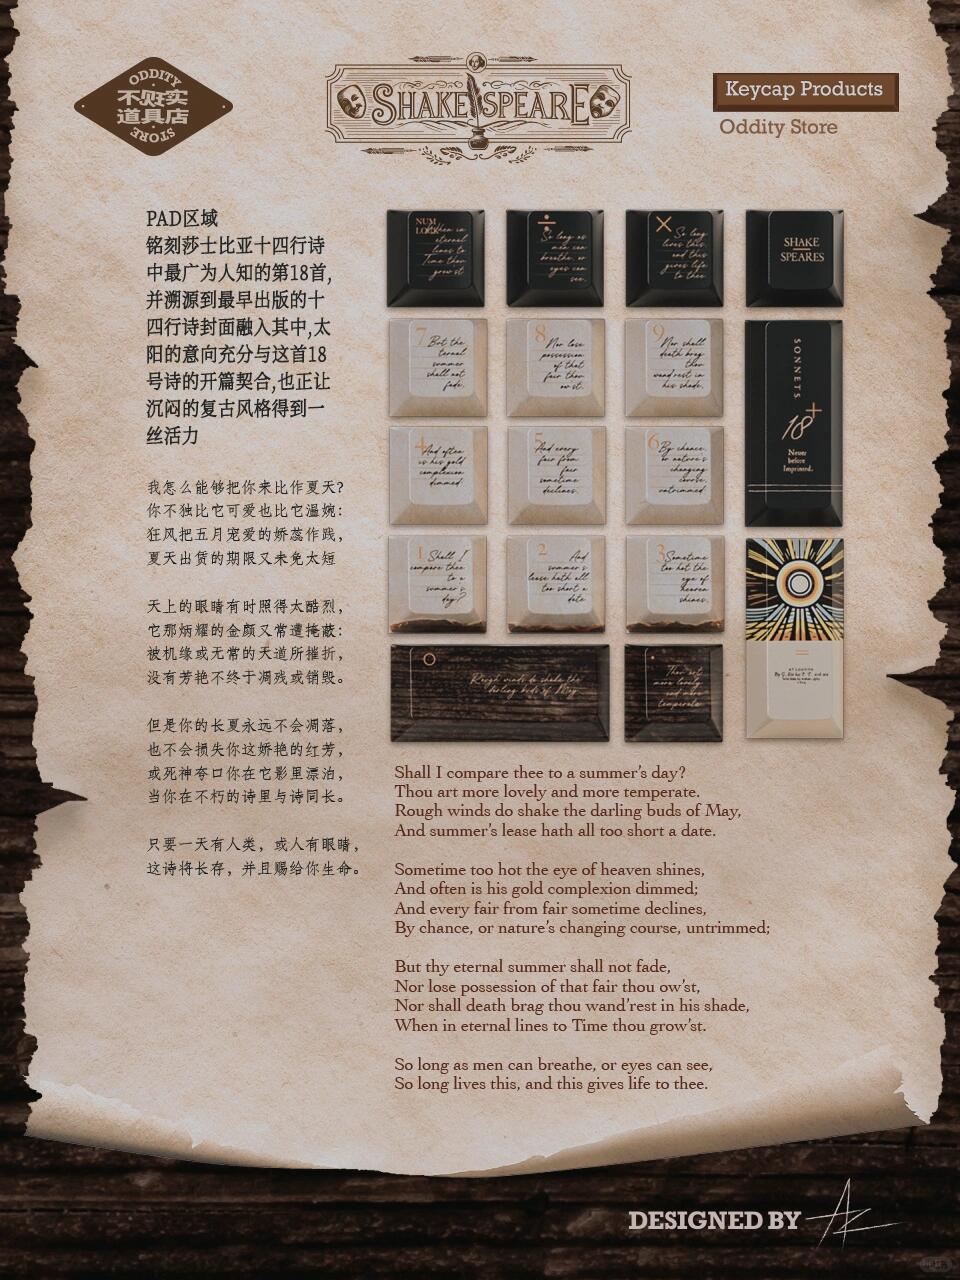 ODDITY
不贬实
道具店
STORE
SHAKESPEARE
Keycap Products
Oddity Store
PAD区域
铭刻莎士比亚十四行诗
中最广为人知的第18首,
并溯源到最早出版的十
四行诗封面融入其中,太
阳的意向充分与这首18
号诗的开篇契合,也正让
沉闷的复古风格得到一
丝活力
我怎么能够把你来比作夏天?
你不独比它可爱也比它温婉:
狂风把五月宠爱的娇蕊作践,
夏天出赁的期限又未免太短
天上的眼睛有时照得太酷烈,
它那炳耀的金颜又常遭掩蔽:
被机缘或无常的天道所摧折,
没有芳艳不终于凋残或销毁。
但是你的长夏永远不会凋落,
也不会损失你这娇艳的红芳,
或死神夸口你在它影里漂泊,
当你在不朽的诗里与诗同长。
只要一天有人类, 或人有眼睛,
这诗将长存, 并且赐给你生命。
NUM
LOCK
When in
eternal
lines to
Time thou
grow'st
÷
So long as
men can
breathe, or
eyes can
see,
×
So long
lives this,
and this
gives life
to thee.
SHAKE
SPEARES
7
But the
eternal
summer
shall not
fade,
8
Nor lose
possession
of that
fair thou
ow'st,
9
Nor shall
death brag
thou
wand'rest in
his shade,
SONNETS
+
18
Never
before
Imprinted.
4
And often
is his gold
complexion
dimmed;
5
And every
fair from
fair
sometime
declines,
6
By chance,
or nature's
changing
course,
untrimmed;
1
Shall I
compare thee
to a
summer's
day?
2
And
summer's
lease hath all
too short a
date.
3
Sometime
too hot the
eye of
heaven
shines,
=
AT LONDON
By G. Eld for T. T. and are
0
Rough winds do shake the
darling buds of May,
.
Thou art
more lovely
and more
temperate.
Shall I compare thee to a summer's day?
Thou art more lovely and more temperate.
Rough winds do shake the darling buds of May,
And summer's lease hath all too short a date.
Sometime too hot the eye of heaven shines,
And often is his gold complexion dimmed;
And every fair from fair sometime declines,
By chance, or nature's changing course, untrimmed;
But thy eternal summer shall not fade,
Nor lose possession of that fair thou ow'st,
Nor shall death brag thou wand'rest in his shade,
When in eternal lines to Time thou grow'st.
So long as men can breathe, or eyes can see,
So long lives this, and this gives life to thee.
DESIGNED BY